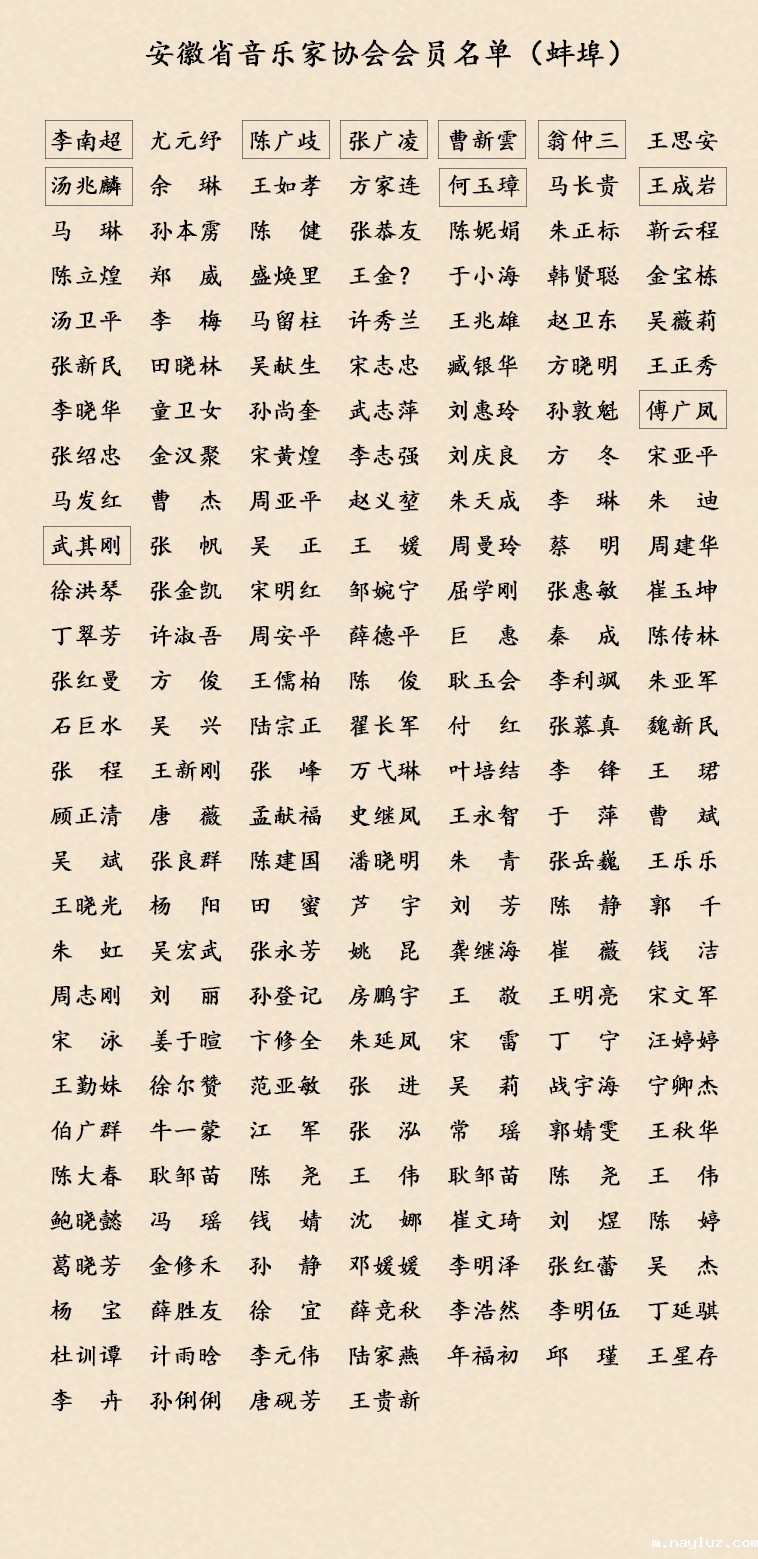 安徽省音乐家协会会员名单（蚌埠）
李南超 尤元纾 陈广歧 张广凌 曹新雲 翁仲三 王思安
汤兆麟 余琳 王如孝 方家连 何玉璋 马长贵 王成岩
马琳 孙本雳 陈健 张恭友 陈妮娟 朱正标 靳云程
陈立煌 郑威 盛焕里 王金？ 于小海 韩贤聪 金宝栋
汤卫平 李梅 马留柱 许秀兰 王兆雄 赵卫东 吴薇莉
张新民 田晓林 吴献生 宋志忠 臧银华 方晓明 王正秀
李晓华 童卫女 孙尚奎 武志萍 刘惠玲 孙敦魁 傅广凤
张绍忠 金汉聚 宋黄煌 李志强 刘庆良 方冬 宋亚平
马发红 曹杰 周亚平 赵义堃 朱天成 李琳 朱迪
武其刚 张帆 吴正 王媛 周曼玲 蔡明 周建华
徐洪琴 张金凯 宋明红 邹婉宁 屈学刚 张惠敏 崔玉坤
丁翠芳 许淑吾 周安平 薛德平 巨惠 秦成 陈传林
张红曼 方俊 王儒柏 陈俊 耿玉会 李利飒 朱亚军
石巨水 吴兴 陆宗正 翟长军 付红 张慕真 魏新民
张程 王新刚 张峰 万弋琳 叶培结 李锋 王珺
顾正清 唐薇 孟献福 史继凤 王永智 于萍 曹斌
吴斌 张良群 陈建国 潘晓明 朱青 张岳巍 王乐乐
王晓光 杨阳 田蜜 芦宇 刘芳 陈静 郭千
朱虹 吴宏武 张永芳 姚昆 龚继海 崔薇 钱洁
周志刚 刘丽 孙登记 房鹏宇 王敬 王明亮 宋文军
宋泳 姜于暄 卞修全 朱延凤 宋雷 丁宁 汪婷婷
王勤妹 徐尔赞 范亚敏 张进 吴莉 战宇海 宁卿杰
伯广群 牛一蒙 江军 张泓 常瑶 郭婧雯 王秋华
陈大春 耿邹苗 陈尧 王伟 耿邹苗 陈尧 王伟
鲍晓懿 冯瑶 钱婧 沈娜 崔文琦 刘煜 陈婷
葛晓芳 金修禾 孙静 邓媛媛 李明泽 张红蕾 吴杰
杨宝 薛胜友 徐宜 薛竞秋 李浩然 李明伍 丁延骐
杜训谭 计雨晗 李元伟 陆家燕 年福初 邱瑾 王星存
李卉 孙俐俐 唐砚芳 王贵新
m.nayluz.com